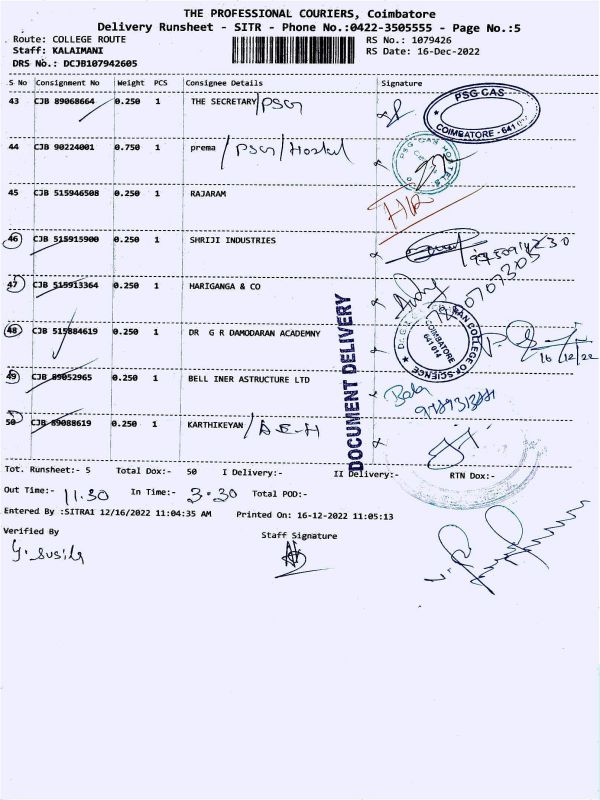 THE PROFESSIONAL COURIERS, Coimbatore
Delivery Runsheet - SITR - Phone No.:0422-3505555 - Page No.:5
Route: COLLEGE ROUTE
RS No.: 1079426
Staff: KALAIMANI
RS Date: 16-Dec-2022
DRS No.: DCJB107942605
S No Consignment No Weight PCS Consignee Details Signature
43 CJB 89068664 0.250 1 THE SECRETARY/PSG
PSG CAS
COIMBATORE - 641
44 CJB 90224001 0.750 1 prema / PSG/Hostel
45 CJB 515946508 0.250 1 RAJARAM
46 CJB 515915900 0.250 1 SHRIJI INDUSTRIES
47 CJB 515913364 0.250 1 HARIGANGA & CO
48 CJB 515884619 0.250 1 DR G R DAMODARAN ACADEMNY
COLLEGE OF SCIENCE
COIMBATORE
641 014
16/12/22
49 CJB 89052965 0.250 1 BELL INER ASTRUCTURE LTD
50 CJB 89088619 0.250 1 KARTHIKEYAN
DOCUMENT DELIVERY
Tot. Runsheet:- 5 Total Dox:- 50 I Delivery:- II Delivery:- RTN Dox:-
Out Time:- 11.30 In Time:- 3.30 Total POD:-
Entered By :SITRA1 12/16/2022 11:04:35 AM Printed On: 16-12-2022 11:05:13
Verified By
Staff Signature